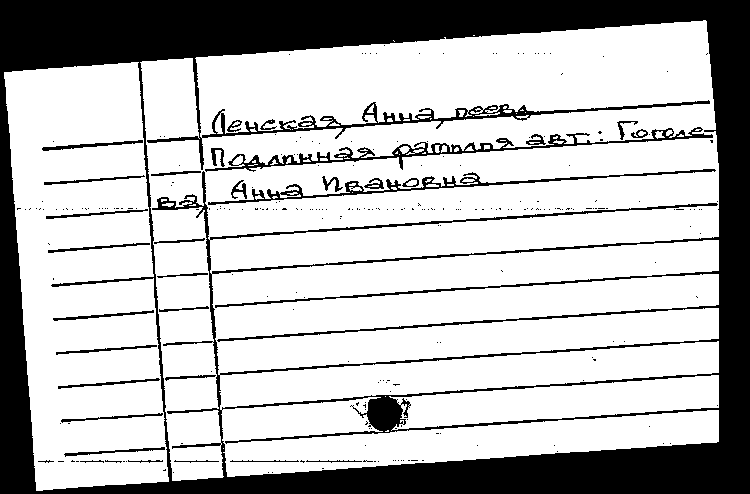 Ленская, Анна, псевд.
Подлинная фамилия авт.: Гоголе-
ва, Анна Ивановна